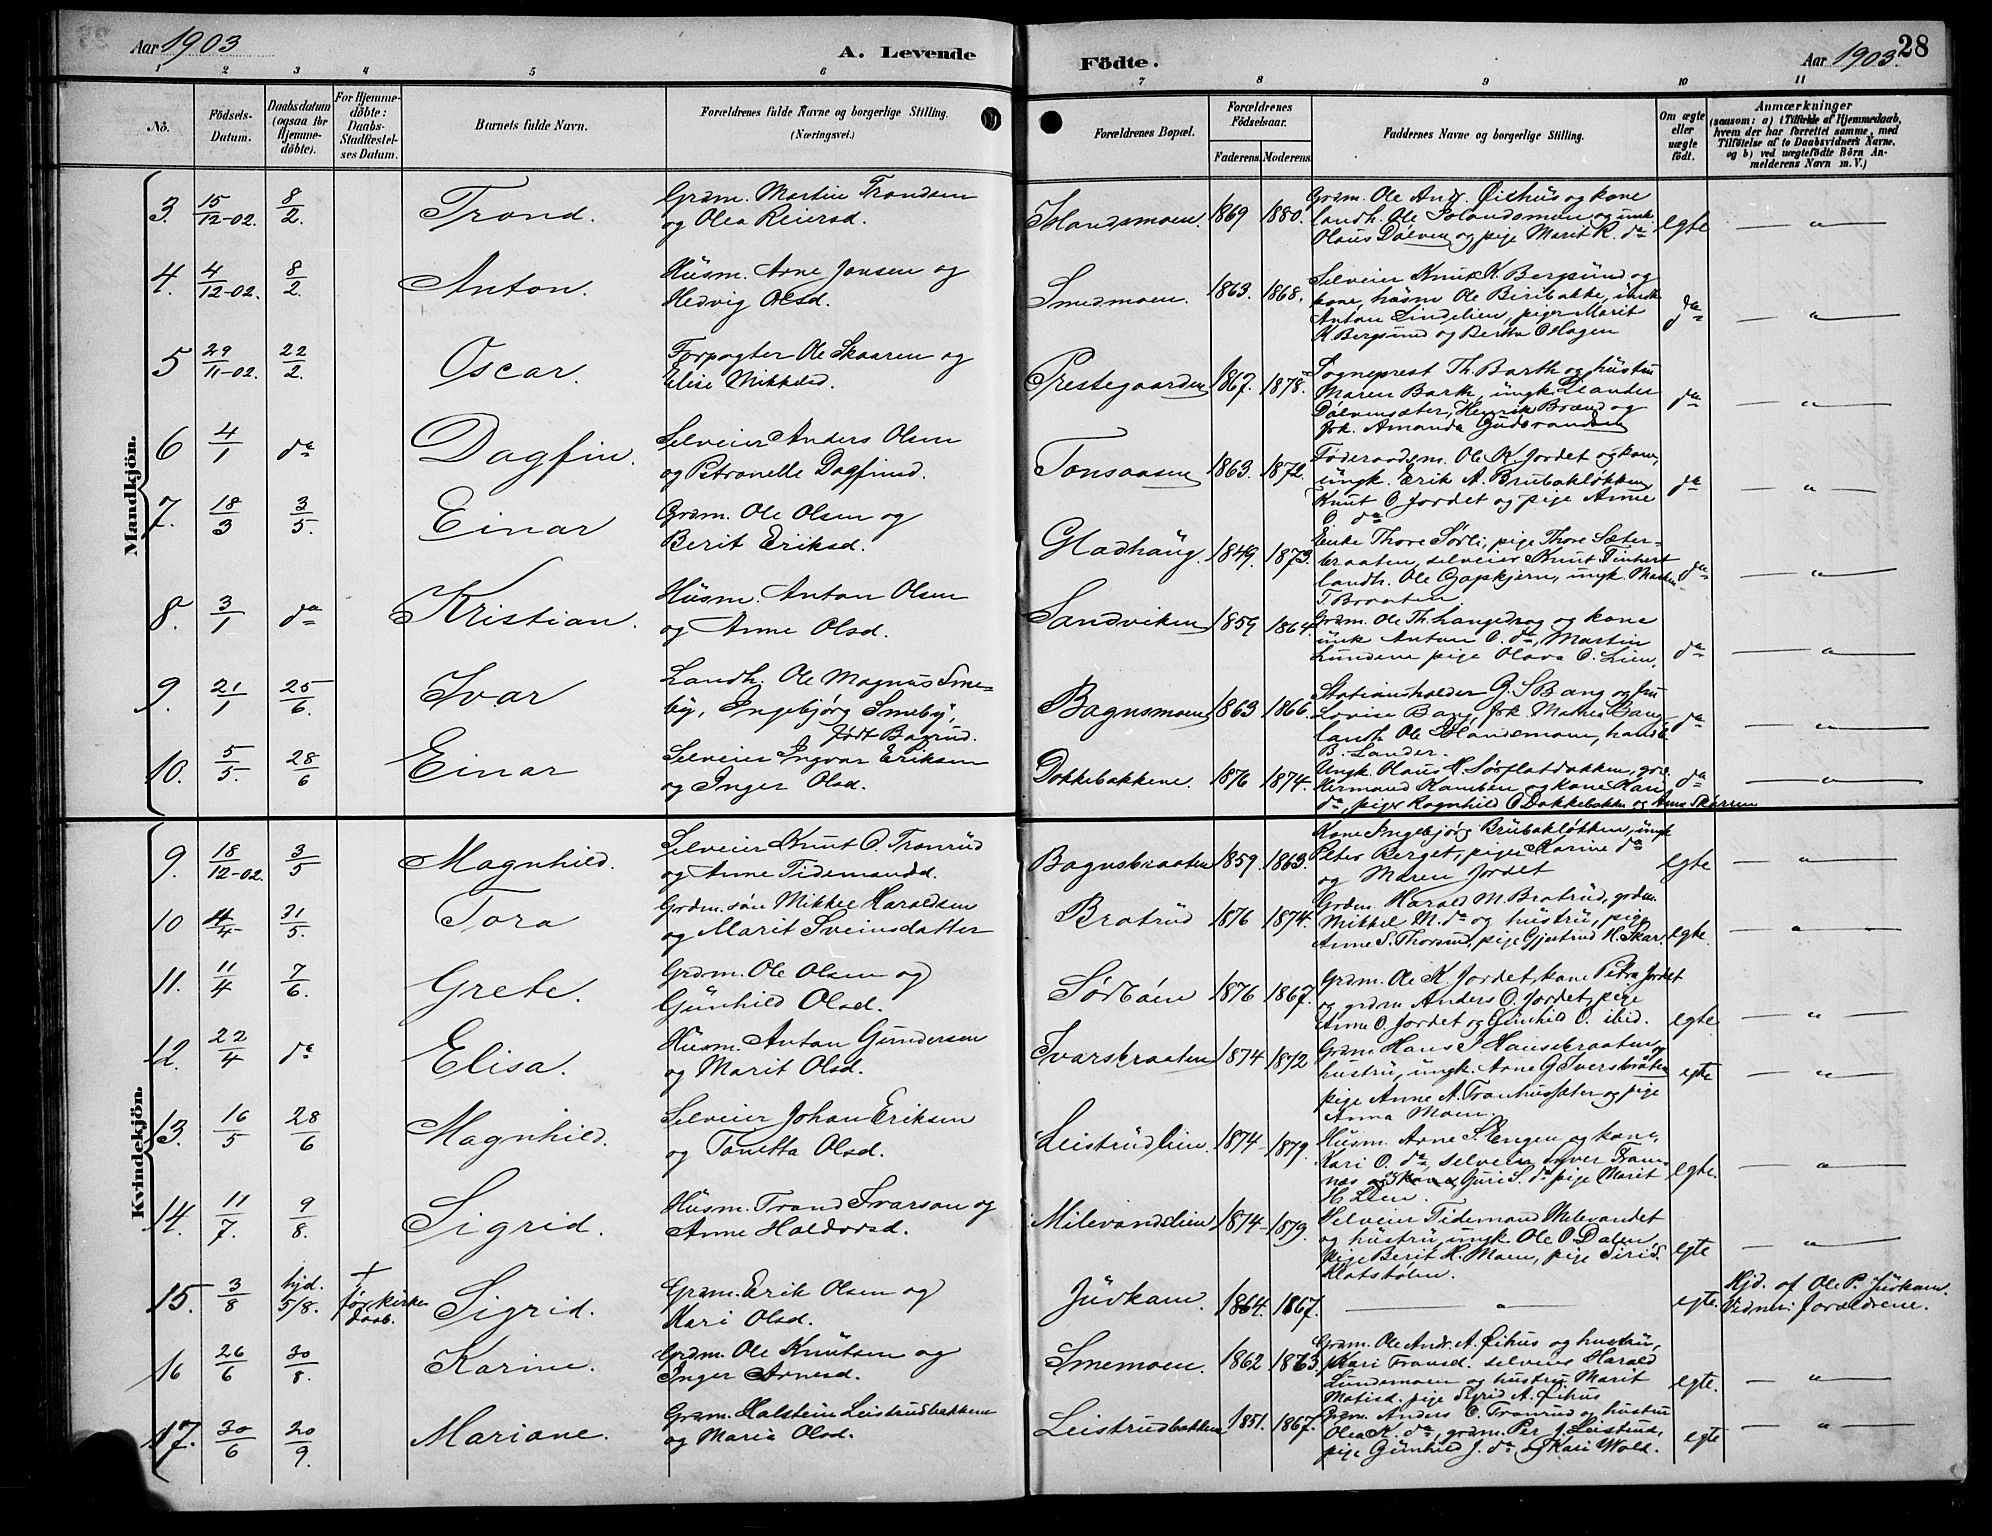 Aar 1903
A. Levende
Födte.
Aar 1903.
28
1 2 3 4 5 6 7 8 9 10 11
No.
Födsels-
Datum.
Daabsdatum
(ogsaa for
Hjemme-
döbte).
For Hjemme-
döbte:
Daabs-
Stadfæstel-
ses Datum.
Barnets fulde Navn.
Forældrenes fulde Navne og borgerlige Stilling.
(Næringsvei.)
Forældrenes Bopæl.
Forældrenes
Födselsaar.
Faderens. Moderens.
Faddernes Navne og borgerlige Stilling.
Om ægte
eller
uægte
födt.
Anmærkninger
(saasom: a) i Tilfælde af Hjemmedaab,
hvem der har forrettet samme, med
Tilföielse af to Daabsvidners Navne,
og b) ved uægtefödte Börn An-
melderens Navn m. V.)
Mandkjön.
3. 15/12-02. 8/2. Trond. Grdm. Martin Trondsen
og Olea Reiersd. Islandsmoen. 1869 1880. Grdm. Ole Andr. Øihus og kone
landh. Ole Islandsmoen og ungk.
Olaus Dølven og pige Marit R. da egte "
4. 4/12-02. 8/2. Anton. Husm. Arne Jonsen og
Hedvig Olsd. Smedmoen. 1863. 1868. Selveier Knut K. Bergsund og
kone, husm Ole Biribakke, ungk
Anton Lindelien, piger Marit
K Bergsund og Bertha O Hagen da "
5 29/11-02. 22/2. Oscar. Forpagter Ole Skaaren og
Elise Mikkelsd. Prestegaarden 1867. 1878. Sogneprest Th. Barth og hustru
Maren Barth, ungk. Leander
Dølvensæter, Henrik Brænd og
frk. Amanda Gudbrandsen da "
6 4/1 da Dagfin. Selveier Anders Olsen
og Petronelle Dagfinsd. Tonsaasen 1863. 1872. Føderaadsm. Ole K. Jordet og kone,
ungk. Erik A. Brubakløkken
Knut O. Jordet og pige Anne
O. da da "
7. 18/3 3/5. Einar Grdm. Ole Olsen og
Berit Eriksd. Gladhaug. 1849. 1873. Enke Thore Sørli, pige Thore Sæter-
braaten, selveier Knut
landh. Ole Gapekjern, ungk.
T. Braaten. da "
8. 3/1 da Kristian. Husm. Anton Olsen
og Anne Olsd. Sandviken 1859 1864. Grdm. Ole Th. Langedrag og kone
ungk Anton O. da, Martin
Lundene pige Olava O. Lien. da "
9. 21/1 25/6. Ivar Landh. Ole Magnus Sme-
by, Ingebjørg Smeby,
født Bagrud. Bagnsmoen 1863 1866. Stationsholder G. S Bang og fru
Lovise Bang, frk. Bang
landh. Ole Islandsmoen,
B. Sander. da "
10. 5/5. 28/6 Einar Selveier Ingvar Eriksen
og Inger Olsd. Dokkebakkene. 1876 1874. Ungk. Olaus H. Sørflatdokken,
Hermand og kone Kari
da, piger Ragnhild O Dokkebakke og da "
Kvindekjön.
9. 18/12-02. 3/5 Magnhild. Selveier Knut O. Tronrud
og Anne Tidemandsd. Bagnsbraaten 1859. 1863. Kone Ingebjørg Brubakløkken, ungk
Peter Berget, piger Karine da
og Maren Jordet egte "
10 4/4 31/5. Tora Grdm. søn Mikkel Haraldsen
og Marit Sveinsdatter Bratrud 1876 1874. Grdm. Harald M Bratrud, grdm.
Mikkel M. da og hustru, pige
Anne S. Thorsrud, pige Gjertrud H. Skar. egte. "
11. 11/4 7/6. Grete. Grdm. Ole Olsen og
Gunhild Olsd. Sørbøen 1876 1867. Grdm. Ole K. Jordet, kone Petra Jordet
og grdm Anders O. Jordet, pige
Anne O. Jordet og Gunhild O. ibid. egte "
12. 22/4 da Elisa. Husm. Anton Gundersen
og Marit Olsd. Ivarsbraaten 1874 1872 Grdm Hans I Hansebraaten og
hustru, ungk. Arne G Iversbraaten
pige Anne A. Tronhussæter og pige
Anna Moen. egte "
13. 16/5 28/6 Magnhild. Selveier Johan Eriksen
og Tonetta Olsd. Leistrudlien. 1874 1879. Husm. Arne S. Engen og kone,
Kari O. da, selveier Syver Fram-
næs og kone Guri S. da pige Marit
H. Lien. egte. "
14. 11/7. 9/8. Sigrid. Husm. Trond Ivarson og
Anne Haldorsd. Milevandslien 1874 1879. Selveier Tidemand Milevandet
og hustru, ungk Ole O. Dalen,
Pige Berit H. Moen, pige Siri S.
Klatstølen. egte "
15. 3/8 hjd.
5/8. †
før kirke
daab. Sigrid. Grdm. Erik Olsen og
Kari Olsd. Juvkam. 1864. 1867. " egte. Hjd. af Ole P. Juvkam.
Vidner: forældrene.
16 26/6 30/8. Karine. Grdm. Ole Knutsen og
Inger Arnesd. Smemoen. 1862 1863. Grdm. Ole Andr. A. Øihus og hustru,
Kari Transd. selveier Harald
Lundemoen og hustru Marit
Matisd. pige Sigrid A. Øihus egte. "
17. 30/6 20/9. Mariane. Grdm. Halstein Leistrudbakkene
og Maria Olsd. Leistrudbakken 1851. 1867. Grdm. Anders O. Tronrud og hustru
Olea K. da, grdm. Per J. Leistrud,
pige Gunhild J. da og Kari Wold. egte "